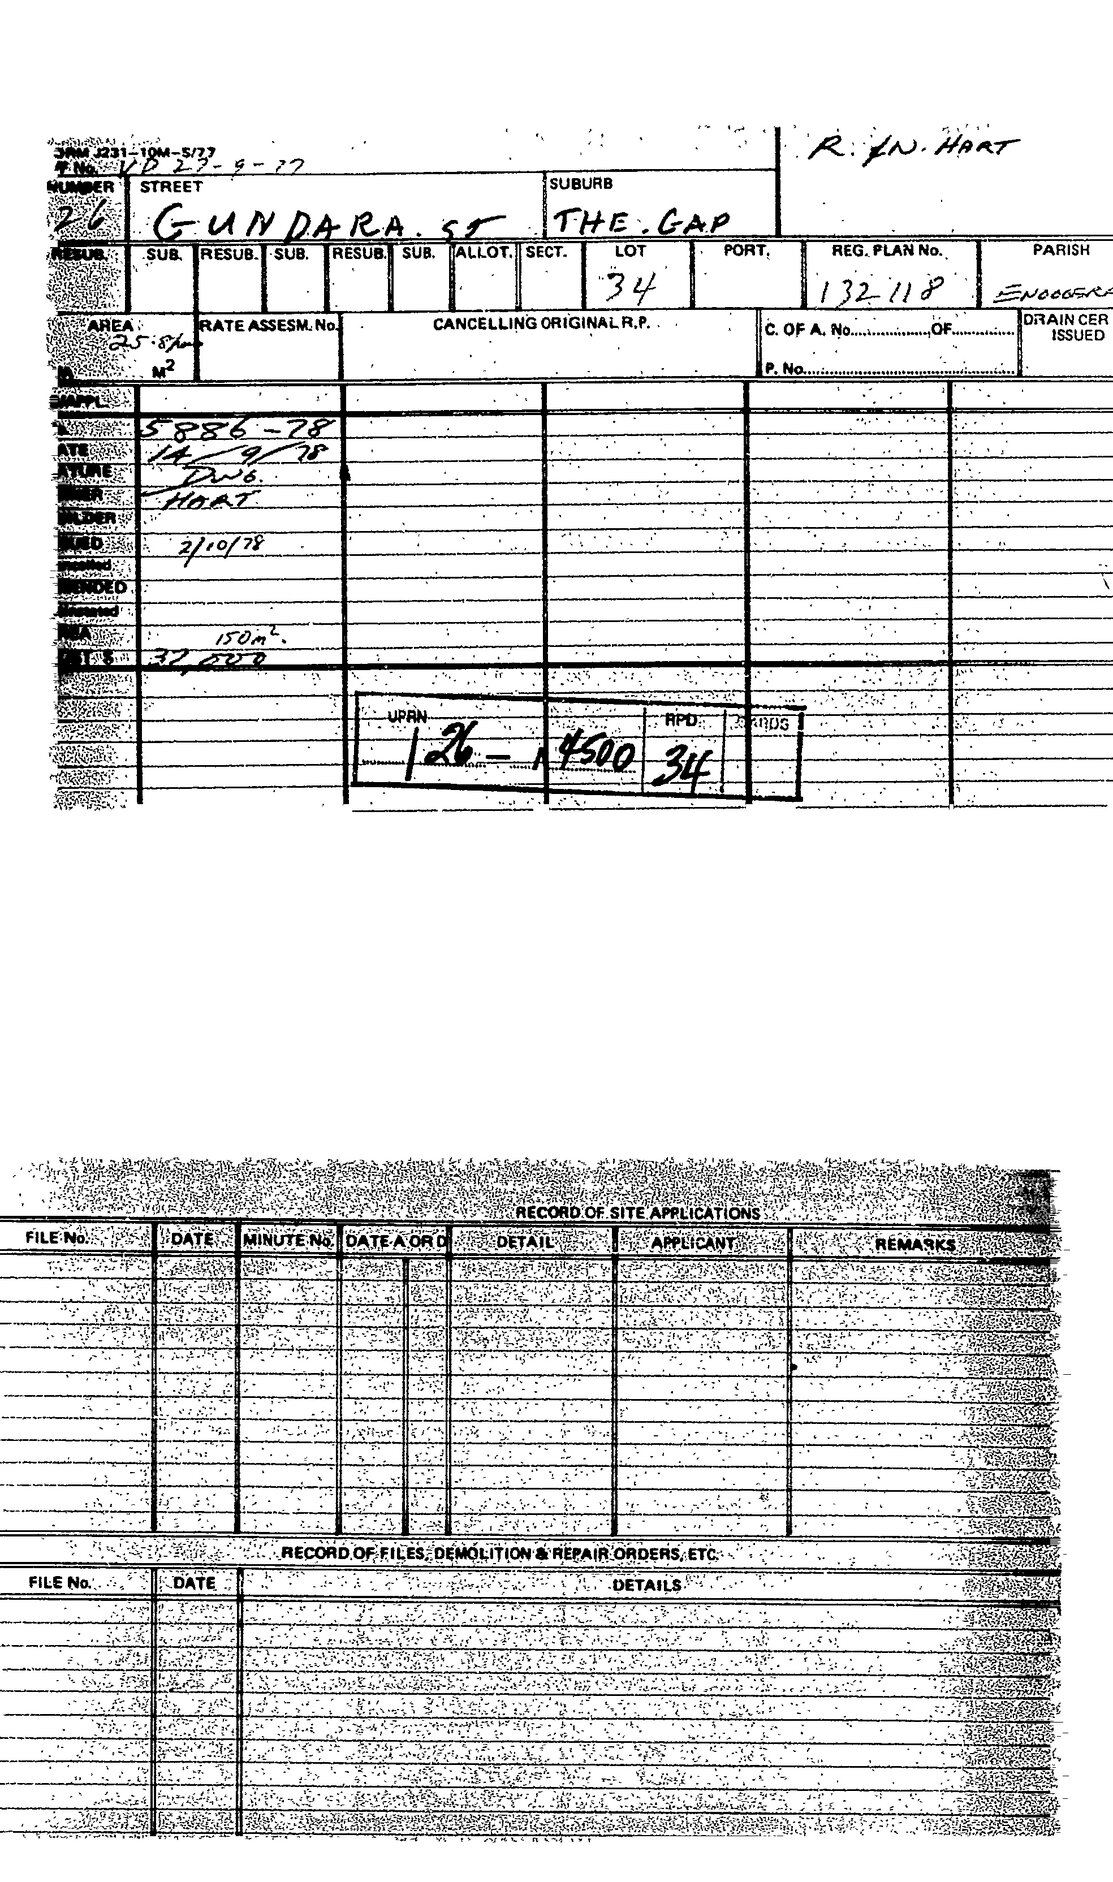 R. & N. HART
ORM J231-10M-5/77
No. V D 27-9-77
NUMBER STREET SUBURB
26 GUNDARA. ST THE. GAP
RESUB. SUB. RESUB. SUB. RESUB. SUB. ALLOT. SECT. LOT PORT. REG. PLAN No. PARISH
34 132118 ENOGGERA
AREA RATE ASSESM. No. CANCELLING ORIGINAL R.P. C. OF A. No. OF DRAIN CER
25.8 ISSUED
M² P. No.
APPL.
5886-78
ATE 14/9/78
ATURE DWG.
WNER HART
UILDER
SUED 2/10/78
ncelled
MENDED
REA 150m².
OST $ 32,000
UPRN RPD
26 - 1 4500 34
RECORD OF SITE APPLICATIONS
FILE No. DATE MINUTE No. DATE A OR D DETAIL APPLICANT REMARKS
RECORD OF FILES, DEMOLITION & REPAIR ORDERS, ETC.
FILE No. DATE DETAILS